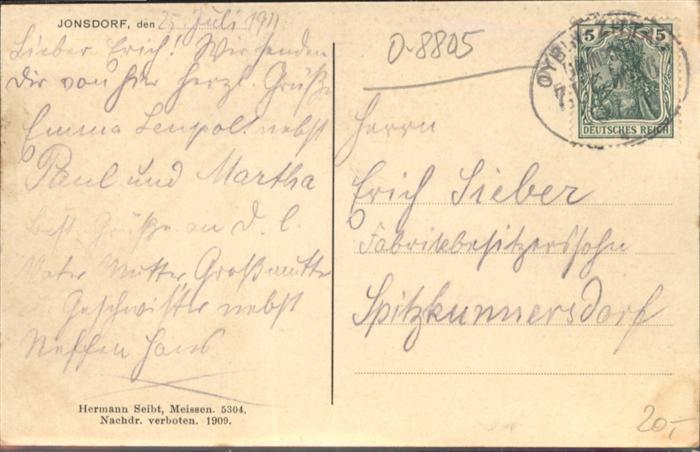 JONSDORF, den 25. Juli 1911
Lieber Erich! Wir senden
Dir von hier herzl. Grüße
Emma Leupolt nebst
Paul und Martha
Best. Grüße an d. l.
Vater Mutter Großmutter
Geschwister nebst
Neffen Hans
Hermann Seibt, Meissen. 5304.
Nachdr. verboten. 1909.
0-8805
5 5
DEUTSCHES REICH
OYBIN
Herrn
Erich Sieber
Fabrikbesitzerssohn
Spitzkunnersdorf
20,-